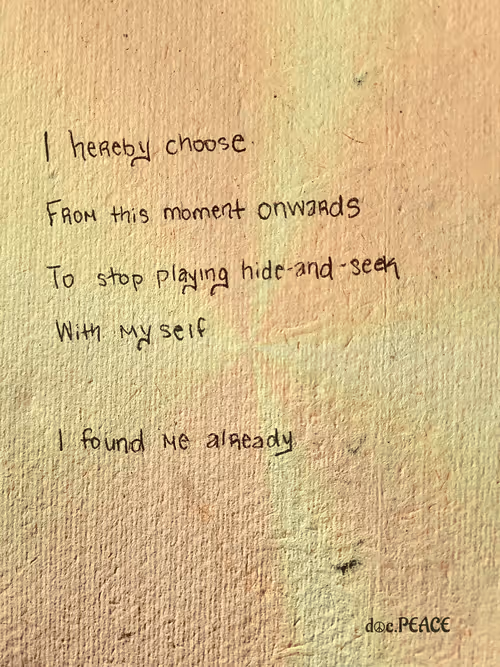 I hereby choose
From this moment onwards
To stop playing hide-and-seek
With myself
I found me already
doc.PEACE